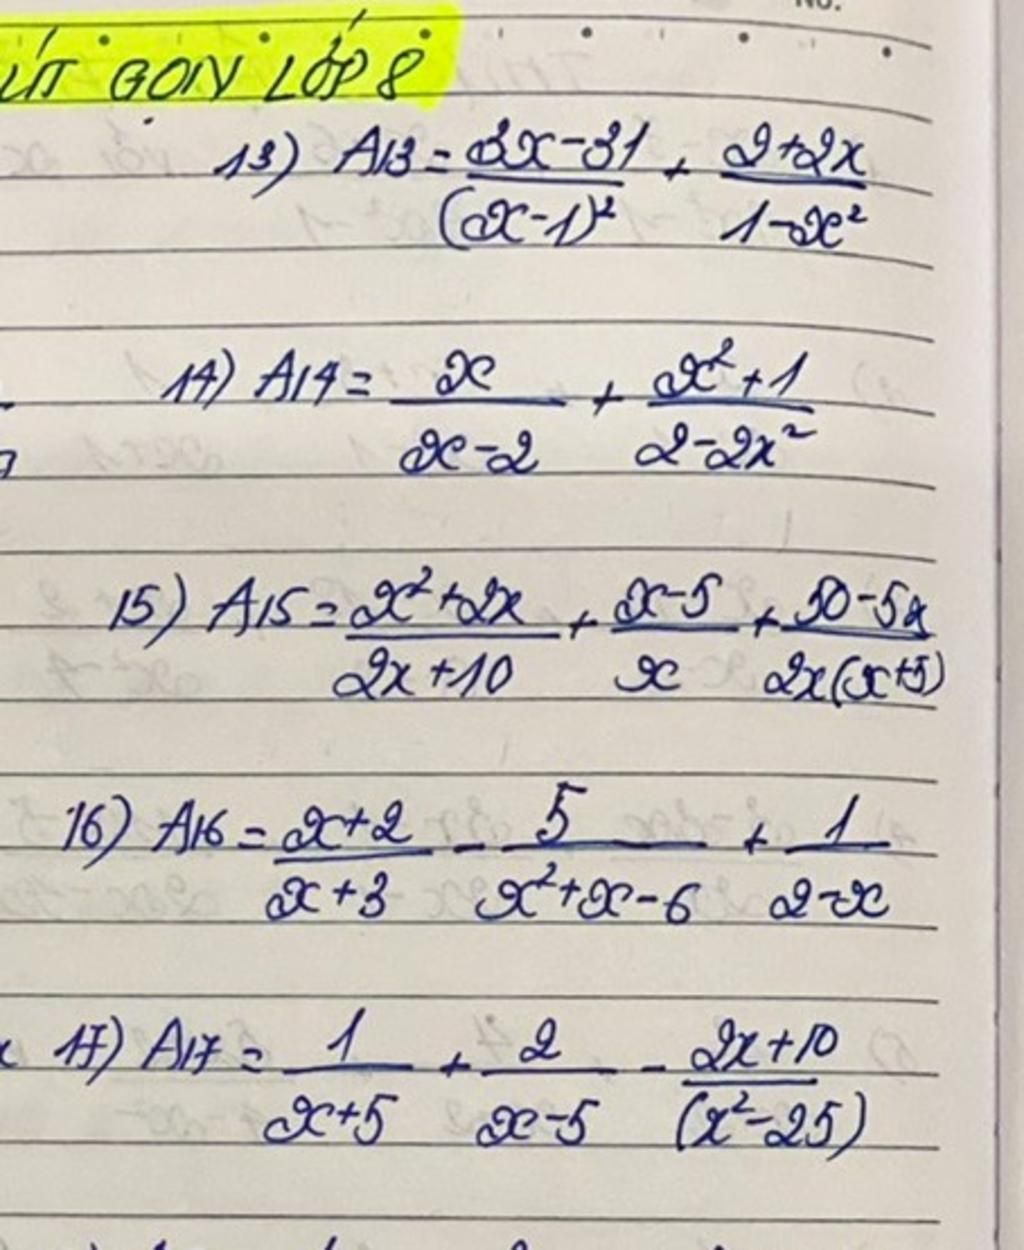 GỌN LỚP 8
13) A13 = (3x-31)/(x-1)² + (2+2x)/(1-x²)
14) A14 = x/(x-2) + (x²+1)/(2-2x²)
15) A15 = (x²+2x)/(2x+10) + (x-5)/x + (50-5x)/(2x(x+5))
16) A16 = (x+2)/(x+3) - 5/(x²+x-6) + 1/(2-x)
17) A17 = 1/(x+5) + 2/(x-5) - (2x+10)/(x²-25)